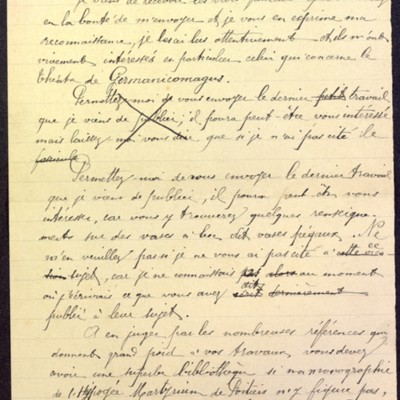 je viens de recevoir les
en la bonté de m'envoyer et je vous en exprime ma
reconnaissance, je les ai lus attentivement et ils m'ont
vivement intéressés en particulier celui qui concerne le
théâtre de Germanicomagus.
Permettez moi de vous envoyer le dernier petit travail
que je viens de publier; il pourra peut-être vous intéresser
mais laissez moi vous dire que si je n'ai pas cité le
fascicule
Permettez moi de vous envoyer le dernier travail
que je viens de publier, il pourra peut être vous
intéresser, car vous y trouverez quelques renseigne
ments sur des vases à bec dit vases pipeaux. Ne
m'en veuillez pas si je ne vous ai pas cité à cette occa
sion sujet, car je ne connaissais pas alors au moment
où j'écrivais ce que vous avez dit écrit dernièrement
publié à leur sujet.
A en juger par les nombreuses références qui
donnent grand poid à vos travaux, vous devez
avoir une superbe bibliothèque si ma monographie
de l'Hypogée Martyrium de Poitiers n'y figure pas,